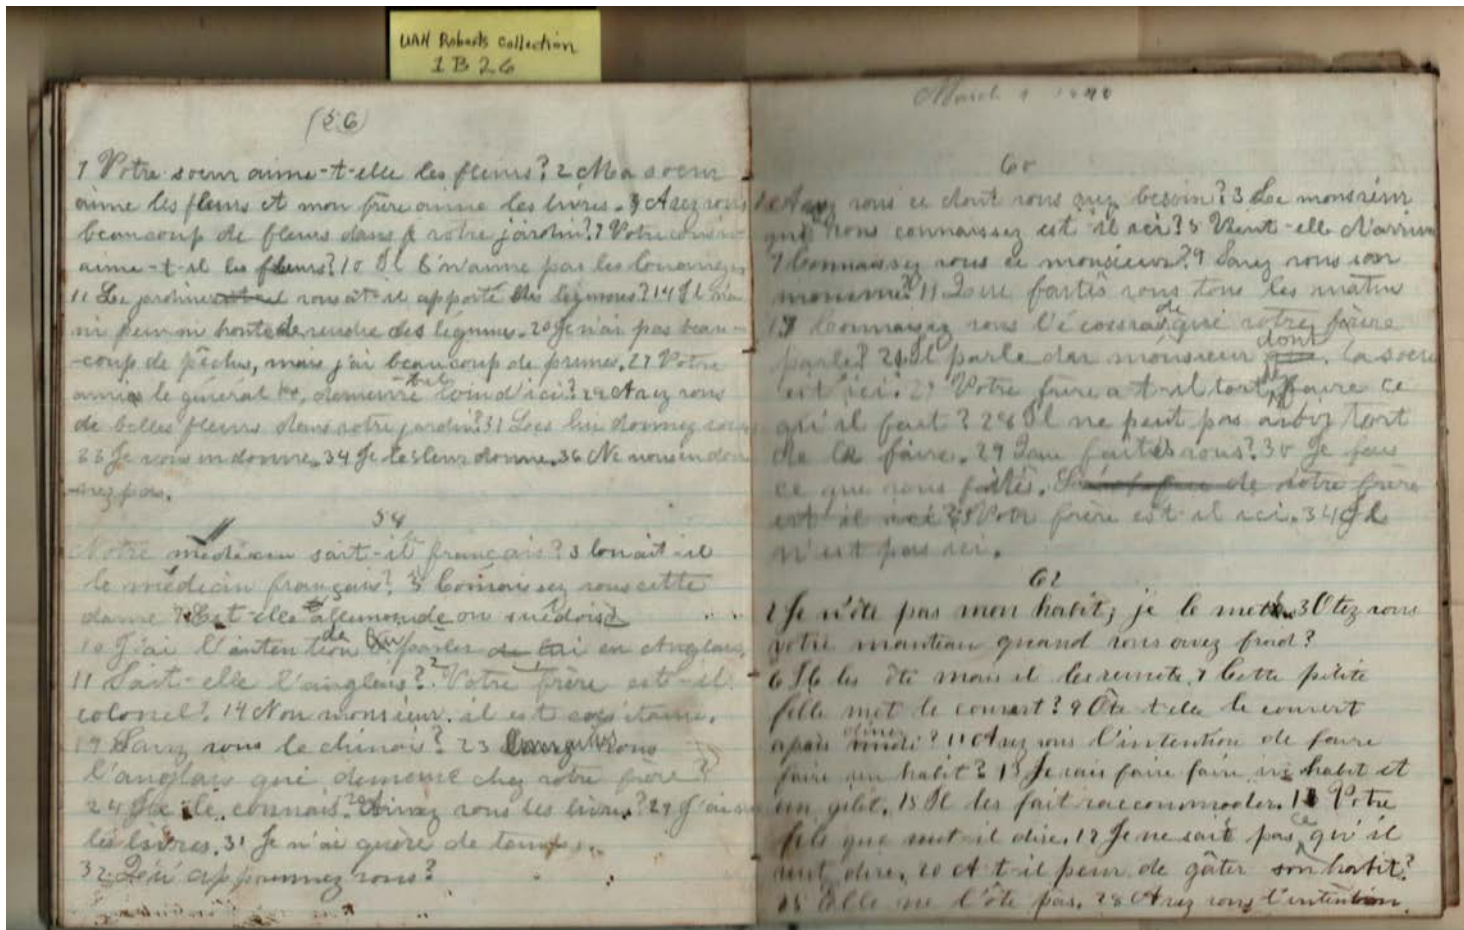 UAH Roberts Collection
1B26
(56)
1 Votre soeur aime-t-elle les fleurs? 2 Ma soeur
aime les fleurs et mon frère aime les livres. 3 Avez vous
beaucoup de fleurs dans votre jardin? 7 Votre cousin
aime-t-il les fleurs? 10 Il n'aime pas les louanges
11 Le jardinier vous at-il apporté des légumes? 14 Il n'a
ni peur ni honte de vendre des légumes. 20 Je n'ai pas beau-
-coup de pêches, mais j'ai beaucoup de prunes. 27 Votre
le général demeure t-il loin d'ici? 29 Avez vous
de belles fleurs dans votre jardin? 31 Les lui donnez vous
33 Je vous en donne. 34 Je les leur donne. 36 Ne nous en don
nez pas.
58
Notre médecin sait-il français? 3 Conait-il
le médecin français? 5 Conaissez vous cette
dame 7 Est-elle allemande ou suédoise
10 J'ai l'intention de parler en Anglais.
11 Sait-elle l'anglais? Votre frère est-il
colonel? 14 Non monsieur. il est capitaine.
19 Savez vous le chinois? 23 vous
l'anglais qui demeure chez votre frère?
24 Je le connais. Aimez vous les livres? 29 J'aime
les livres. 31 Je n'ai guère de temps.
32 apprennez vous?
March 1890
60
Avez vous ce dont vous avez besoin? 3 Le monsieur
que vous connaissez est-il ici? 5 Vient-elle d'arriver
7 Connaissez vous ce monsieur? 9 Savez vous son
11 Que faites vous tous les matin
17 vous l'écossais de qui votre frère
parle? Il parle monsieur dont la soeur
est ici. 27 Votre frère a t-il tort de faire ce
qu'il fait? 28 Il ne peut pas avoir tort
de le faire. 29 Que faites vous? 30 Je fais
ce que vous faites. de votre frère
est il ici? Votre frère est-il ici. 34 Il
n'est pas ici.
62
1 Je n'ôte pas mon habit; je le mets. 3 Otez vous
votre manteau quand vous avez froid?
6 Il les ôte mais il les remete. 7 Cette petite
fille met le couvert? 9 Ôte t-elle le couvert
après diner? 11 Avez vous l'intention de faire
faire un habit? 13 Je vais faire faire un habit et
un gilet. 15 Il les fait raccommoder. Votre
fils que veut-il dire. 17 Je ne sait pas ce qu'il
veut dire. 20 A t-il peur de gâter son habit?
25 Elle ne l'ôte pas. 28 Avez vous l'intention